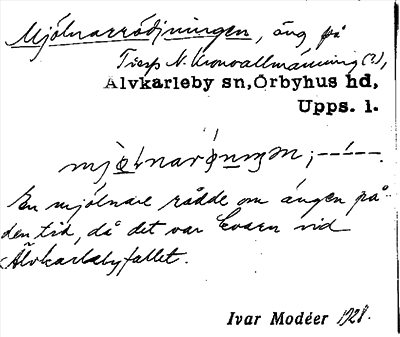 Mjölnarrödjningen, äng på
Tierps N. Kronoallmänning (?),
Älvkarleby sn, Örbyhus hd,
Upps. l.
En mjölnare rådde om ängen på
den tid, då det var kvarn vid
Älvkarlebyfallet.
Ivar Modéer 1928.